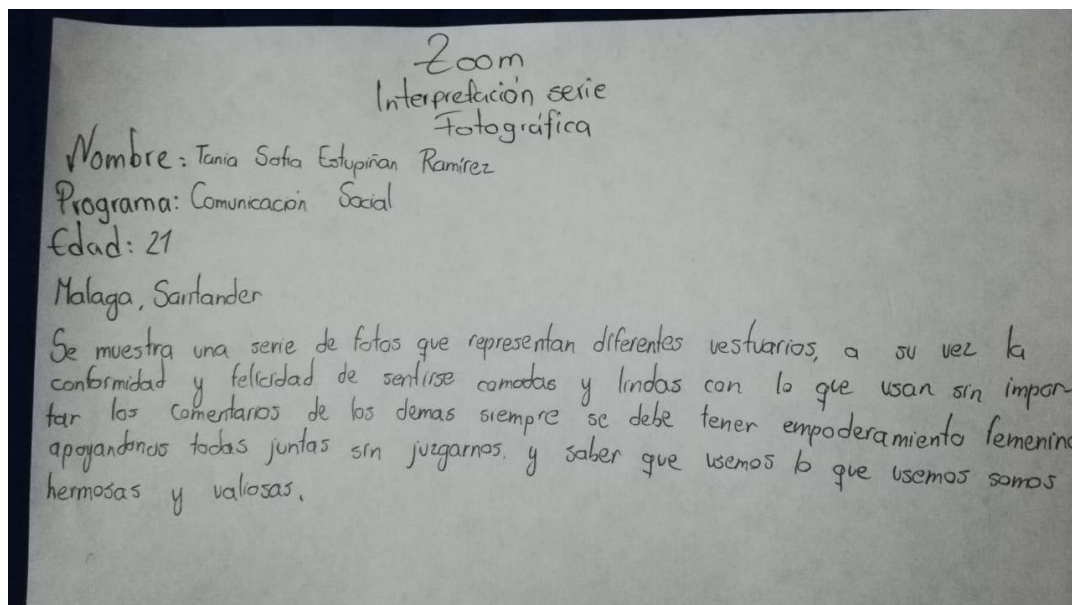 Zoom
Interpretación serie
Fotográfica
Nombre: Tania Sofia Estupiñan Ramírez
Programa: Comunicación Social
Edad: 21
Malaga, Santander
Se muestra una serie de fotos que representan diferentes vestuarios, a su vez la
conformidad y felicidad de sentirse comodas y lindas con lo que usan sin impor-
tar los comentarios de los demas siempre se debe tener empoderamiento femenino
apoyandonos todas juntas sin juzgarnos, y saber que usemos lo que usemos somos
hermosas y valiosas.